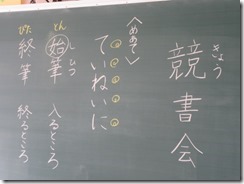 きょう
競書会
〈めあて〉
ていねいに
とん
しひつ
始筆 入るところ
ぴた
終筆 終るところ